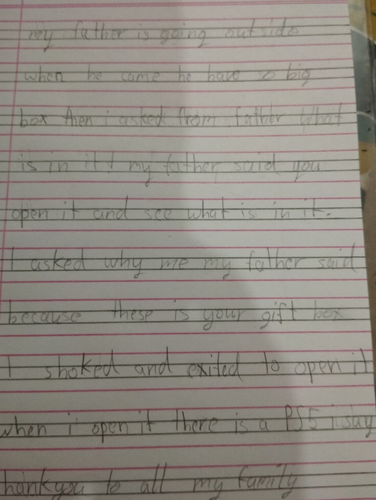 my father is going outside
when he came he have so big
box then i asked from father What
is in it! my father said you
open it and see what is in it.
I asked why me my father said
because these is your gift box
I shoked and exited to open it
when i open it there is a PS5 i say
thankyou to all my family